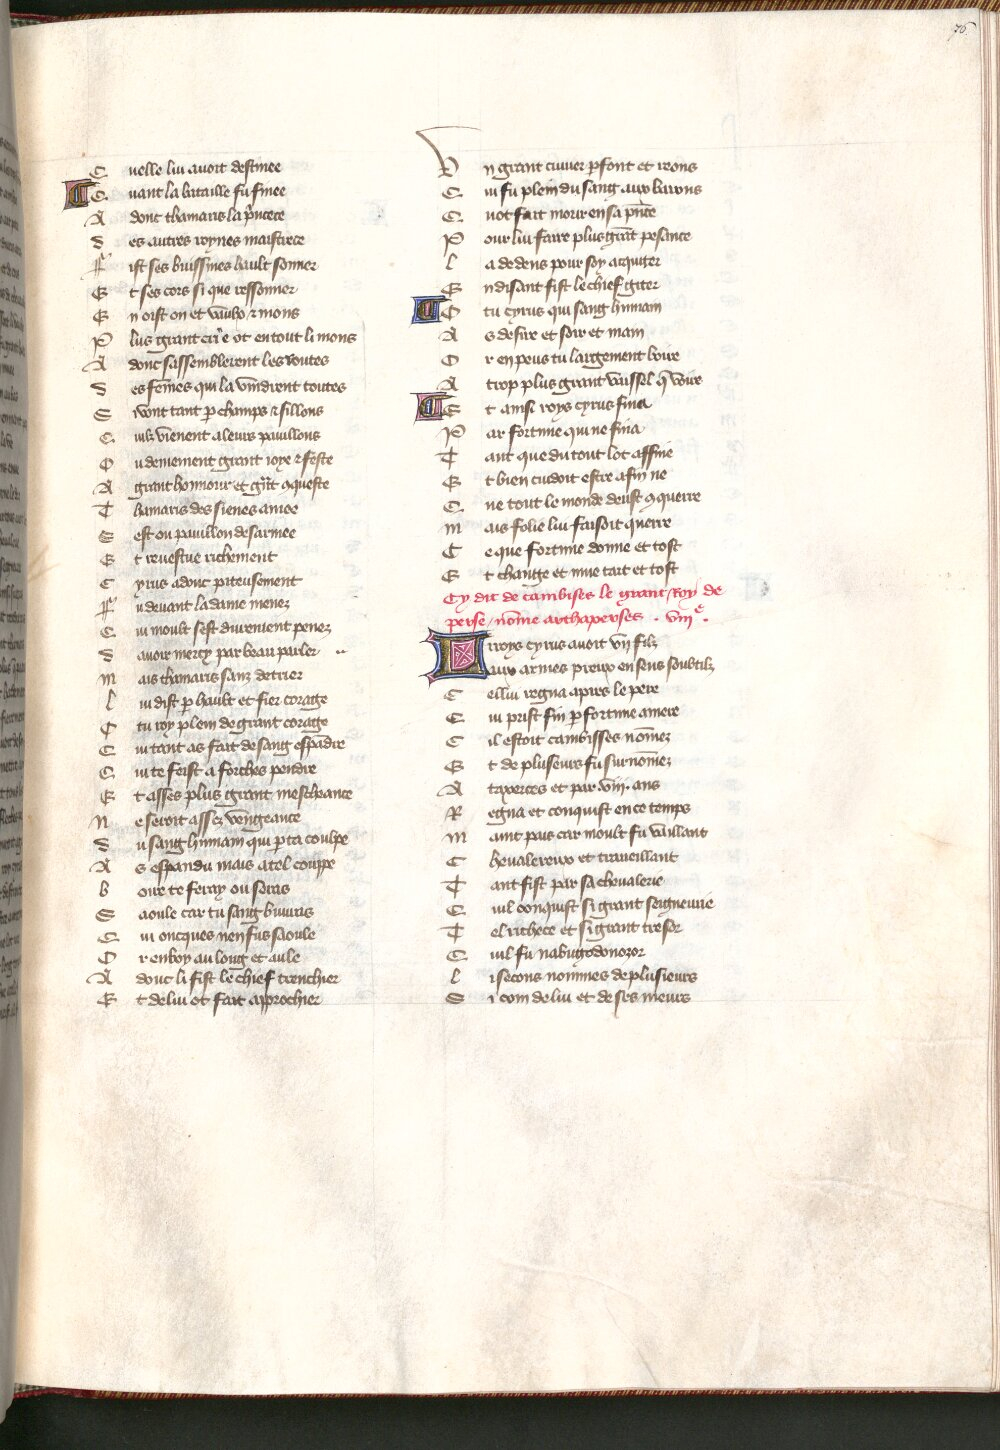 76
Quelle lui avoit destinee
Quant la bataille fu finee
Adonc thamaris la p̾ncece
Des autres roynes maistrece
Fist ses buissines hault sonner
Et ses cors si que ressonner
En oist on et vaulx ⁊ mons
Plus grant ot en tout li mons
Adonc sassemblerent les routes
Des fem̄es qui la vindrent toutes
Si vont tant p̲ champs ⁊ sillons
Quilz vienent a leurs pauillons
Ou demenment grant ioye ⁊ feste
A grant honnour et gñt ꝯqueste
Thamaris des sienes amee
Sest ou pauillon desarmee
Et reuestue richement
Cyrus adonc piteusement
Fu deuant la dame menez
Qui moult sest durement penez
Dauoir mercy par beau parler
Mais thamaris sanz detrier
Lui dist p̲ hault et fier corage
O tu roy plein de grant corage
Qui tant as fait de sang espādre
Qui te feist a forches pendre
Et asses plus grant mescheance
Ne seroit assez vengeance
Du sang humain qui p̲ ta coulpe
As espandu mais a tel couppe
Boire te feray ou seras
Saoule car tu sang buuras
Qui oncques nen fus saoule
Or en boy au long et au le
Adonc li fist le chief trenchier
Et de lui et fait approchier
Un grant cuuier p̲font et reons
Qui fu plein du sang aux barons
Quot fait morir en sa p̾nce
Pour lui faire plus grāt pesance
La dedens pour soy aquiter
En disant fist le chief giter
O tu cyrus qui sang humain
As desire et soir et main
Or en peus tu largement boire
A trop plus grant vaissel q̄ voire
Et ainsi roys cyrus fina
Par fortune qui ne fina
Tant que du tout lot affine
Et bien cuidoit estre afin ne
Que tout le monde deust ꝯquerre
Mais folie lui faisoit querre
Ce que fortune donne et tost
Et change et mue tart et tost
Cy dit de cambises le grant Roy de
perse / nōme arthaperses . viijᵉ .
Li roys cyrus auoit vn filz
Aux armes preux en sens soubtilz
Cellui regna apres le pere
Qui prist fin p̲ fortune amere
Cil estoit cambisses nōmez
Et de pluseurs fu surnōmez
Ataxerces et par .viij. ans
Regna et conquist en ce temps
Maint pais car moult fu vaillant
Cheualereux et trauaillant
Tant fist par sa cheualerie
Quil conquist si grant seigneurie
Tel richece et si grant tresor
Quil fu nabugodonozor
Li secons nommes de plusieurs
Si com de lui et de ses meurs